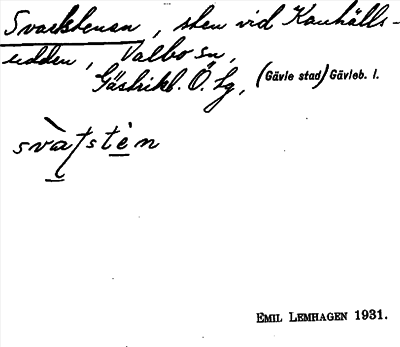 Svartstenan, sten vid Kanhälls-
udden, Valbo sn,
Gästrikl. Ö. Lg, (Gävle stad) Gävleb. l.
svàʈstèn
EMIL LEMHAGEN 1931.